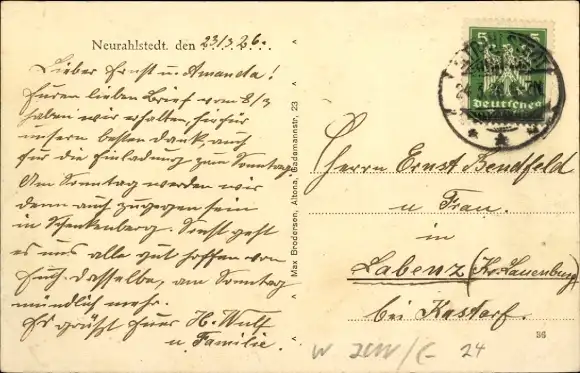 Neurahlstedt, den 23/3.26.
Lieber Ernst u. Amanda!
Euren lieben Brief vom 8/3
haben wir erhalten, hierfür
unsern besten Dank, auch
für die Einladung zum Sonntag.
Am Sonntag werden wir
denn auch zugegen sein
in Schenkenberg. Sonst geht
es uns alle gut hoffen von
Euch dasselbe, am Sonntag
mündlich mehr.
Es grüßt Euer H. Wulf
u Familie.
Max Brodersen, Altona, Gademannstr. 23
5 5
Deutsches
Herrn Ernst Bendfeld
u Frau.
in
Labenz (Kr. Lauenburg)
bei Kastorf.
96
24